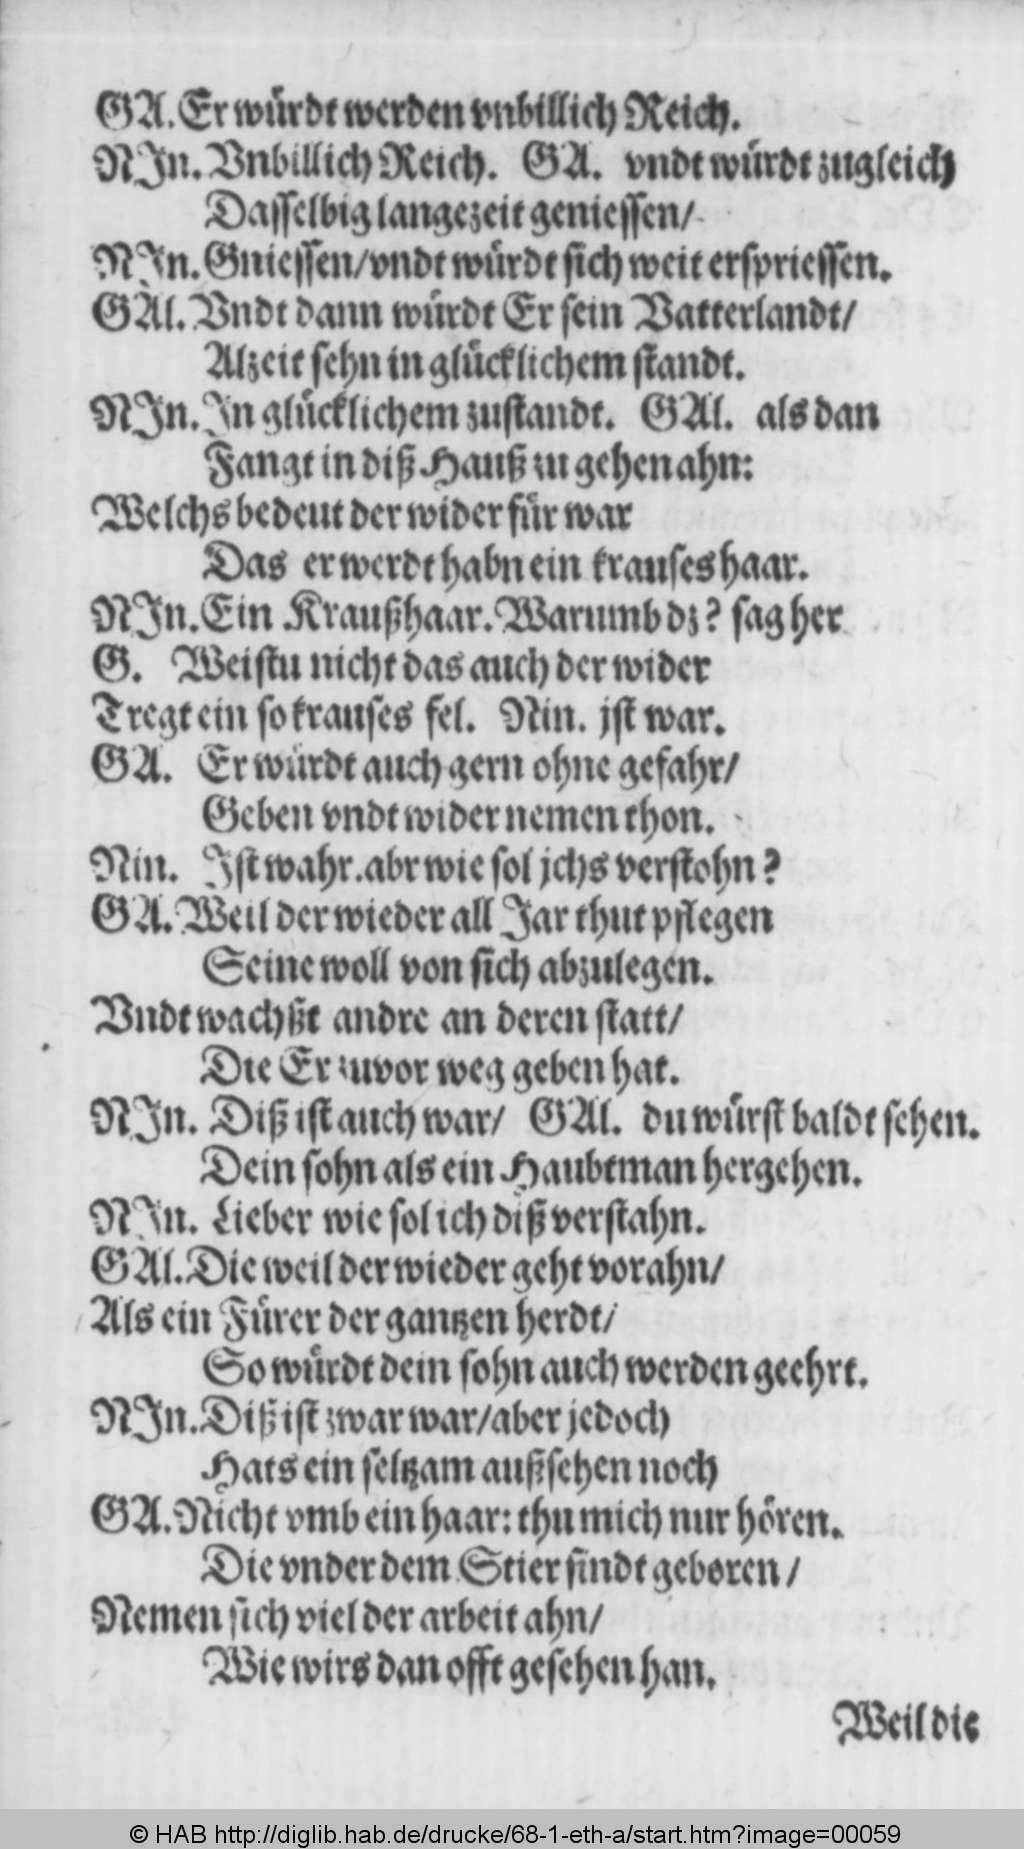 GA. Er würdt werden vnbillich Reich.
NJn. Vnbillich Reich. GA. vndt würdt zugleich
Dasselbig lange zeit geniessen/
NJn. Gniessen/ vndt würdt sich weit erspriessen.
GAl. Vndt dann würdt Er sein Vatterlandt/
Alzeit sehn in glücklichem standt.
NJn. In glücklichem zustandt. GAl. als dan
Fangt in diß Hauß zu gehen ahn:
Welchs bedeut der wider für war
Das er werdt habn ein krauses haar.
NJn. Ein Kraußhaar. Warumb dz? sag her
G. Weistu nicht das auch der wider
Tregt ein so krauses fel. Nin. jst war.
GA. Er würdt auch gern ohne gefahr/
Geben vndt wider nemen thon.
Nin. Ist wahr. abr wie sol jchs verstohn?
GA. Weil der wieder all Jar thut pflegen
Seine woll von sich abzulegen.
Vndt wachßt andre an deren statt/
Die Er zuvor weg geben hat.
NJn. Diß ist auch war/ GAl. du würst baldt sehen.
Dein sohn als ein Haubtman hergehen.
NJn. Lieber wie sol ich diß verstahn.
GAl. Die weil der wieder geht vorahn/
Als ein Fürer der gantzen herdt/
So würdt dein sohn auch werden geehrt.
NJn. Diß ist zwar war/ aber jedoch
Hats ein seltzam außsehen noch
GA. Nicht vmb ein haar: thu mich nur hören.
Die vnder dem Stier sindt geboren/
Nemen sich viel der arbeit ahn/
Wie wirs dan offt gesehen han.
Weil die
© HAB http://diglib.hab.de/drucke/68-1-eth-a/start.htm?image=00059